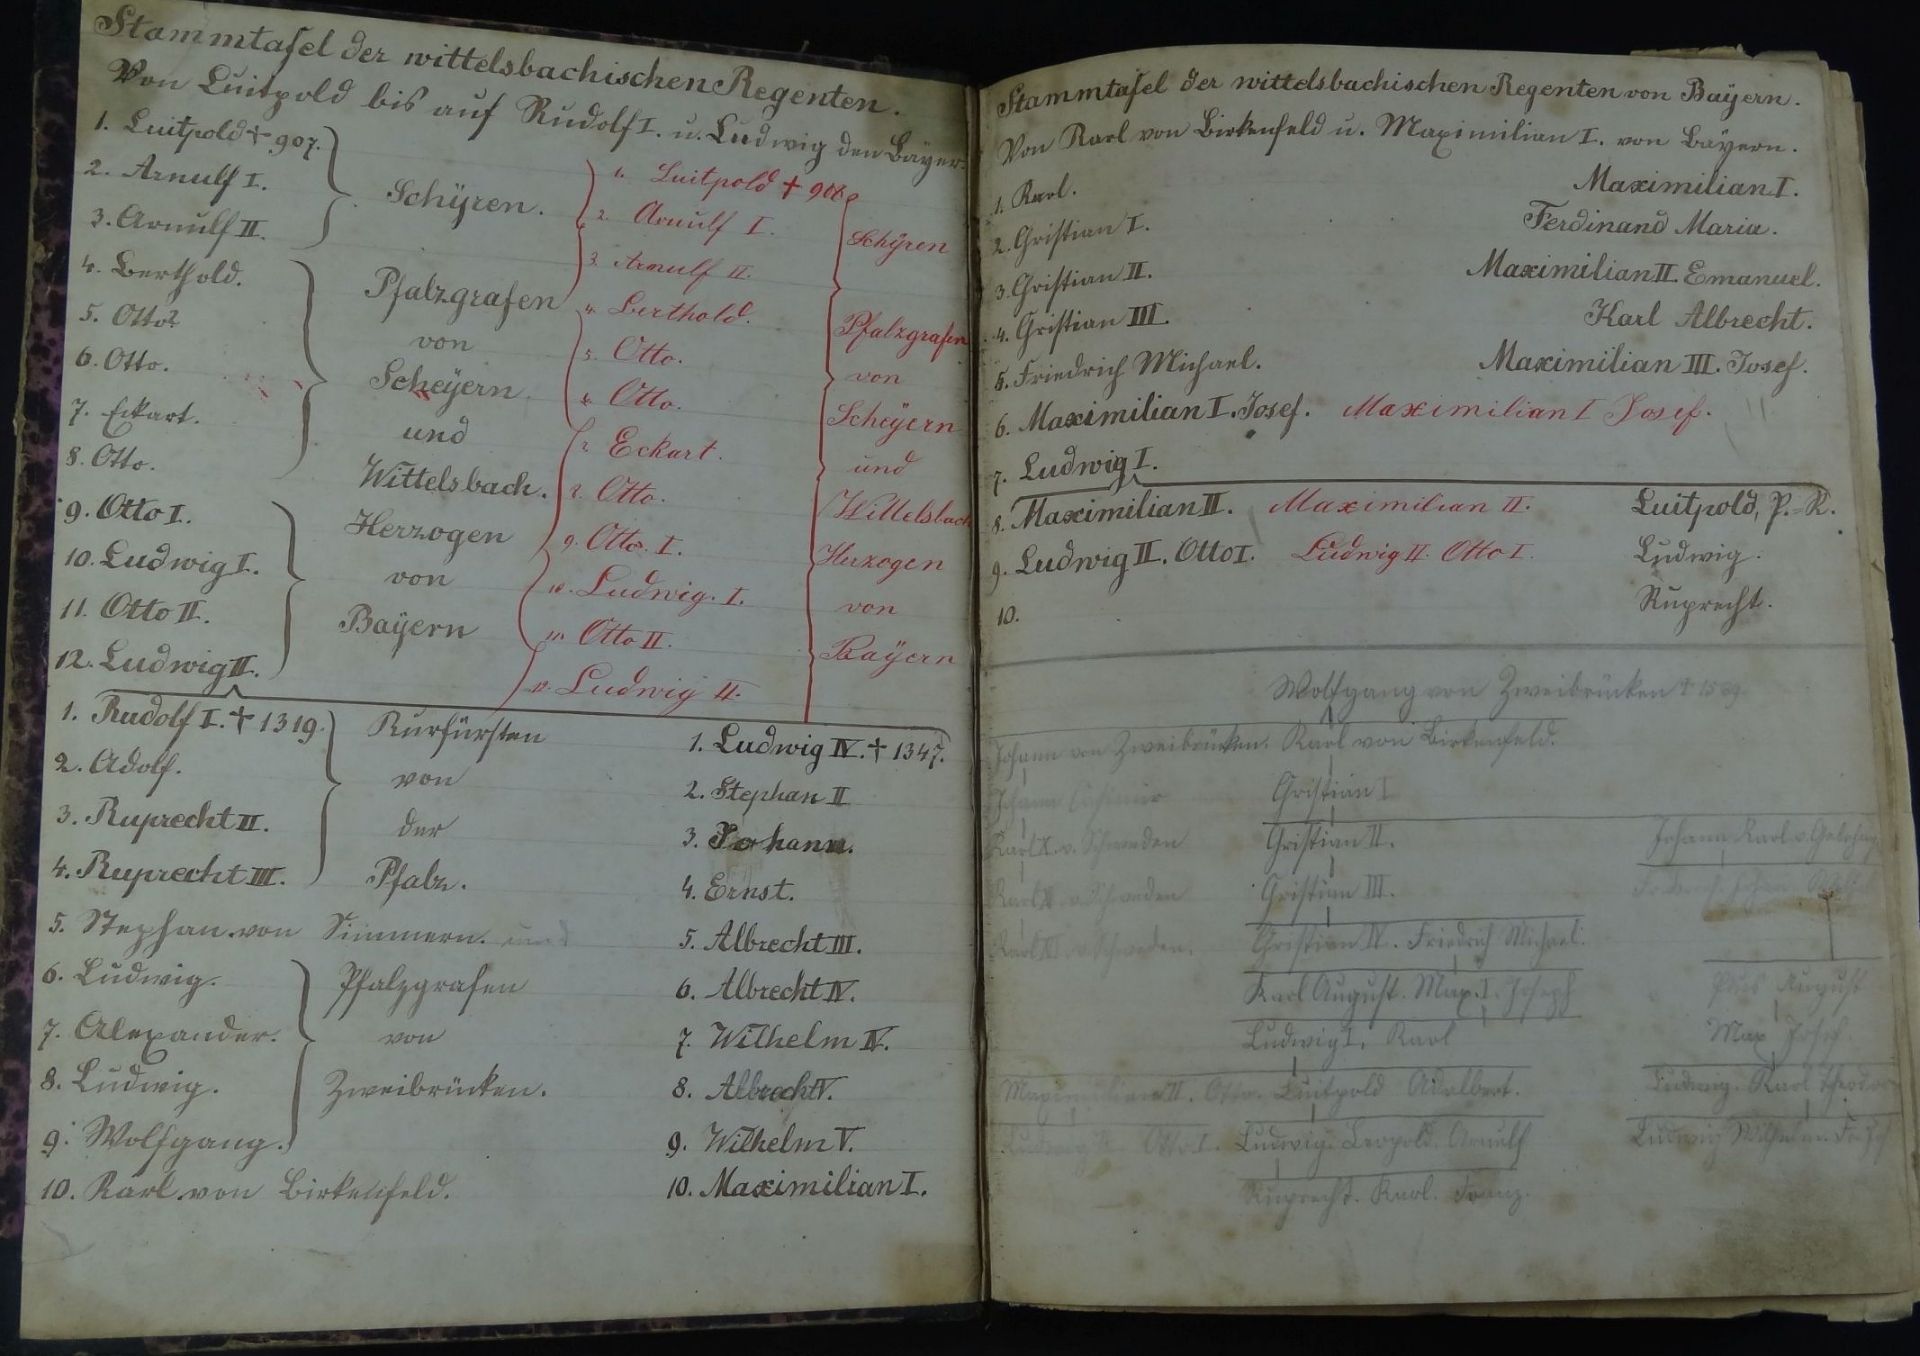 Stammtafel der wittelsbachischen Regenten.
Von Luitpold bis auf Rudolf I. u. Ludwig den Bayer.
1. Luitpold † 907.
2. Arnulf I.
3. Arnulf II.
Schÿren.
4. Berthold.
5. Otto
6. Otto.
7. Eckart.
8. Otto.
Pfalzgrafen
von
Scheÿern
und
Wittelsbach.
9. Otto I.
10. Ludwig I.
11. Otto II.
12. Ludwig II.
Herzogen
von
Baÿern
1. Luitpold † 908
2. Arnulf I.
3. Arnulf II.
Schÿren
4. Berthold.
5. Otto.
6. Otto.
7. Eckart.
8. Otto.
Pfalzgrafen
von
Scheÿern
und
Wittelsbach
9. Otto. I.
10. Ludwig. I.
11. Otto II.
12. Ludwig II.
Herzogen
von
Baÿern
1. Rudolf I. † 1319.
2. Adolf.
3. Ruprecht II.
4. Ruprecht III.
Kurfürsten
von
der
Pfalz.
5. Stephan von Simmern. und
6. Ludwig.
7. Alexander.
8. Ludwig.
9. Wolfgang.
Pfalzgrafen
von
Zweibrücken.
10. Karl von Birkenfeld.
1. Ludwig IV. † 1347.
2. Stephan II
3. Johann.
4. Ernst.
5. Albrecht III.
6. Albrecht IV.
7. Wilhelm IV.
8. Albrecht V.
9. Wilhelm V.
10. Maximilian I.
Stammtafel der wittelsbachischen Regenten von Baÿern.
Von Karl von Birkenfeld u. Maximilian I. von Baÿern.
1. Karl. Maximilian I.
2. Christian I. Ferdinand Maria.
3. Christian II. Maximilian II. Emanuel.
4. Christian III. Karl Albrecht.
5. Friedrich Michael. Maximilian III. Josef.
6. Maximilian I. Josef. Maximilian I Josef.
7. Ludwig I.
8. Maximilian II. Maximilian II. Luitpold, P.=R.
9. Ludwig II. Otto I. Ludwig II. Otto I. Ludwig.
10. Ruprecht.
Wolfgang von Zweibrücken †
Johann von Zweibrücken. Karl von Birkenfeld.
Johann Casimir Christian I
Karl X. v. Schweden Christian II. Johann Karl v.
Karl XI v. Schweden Christian III.
Karl XII v. Schweden. Christian IV. Friedrich Michael.
Karl August. Max. I. Joseph Pius August
Ludwig I. Karl Max Josef.
Maximilian II. Otto. Luitpold Adalbert. Ludwig. Karl Theodor
Ludwig II. Otto I. Ludwig. Leopold. Arnulf Ludwig Wilhelm.
Ruprecht. Karl. Franz.